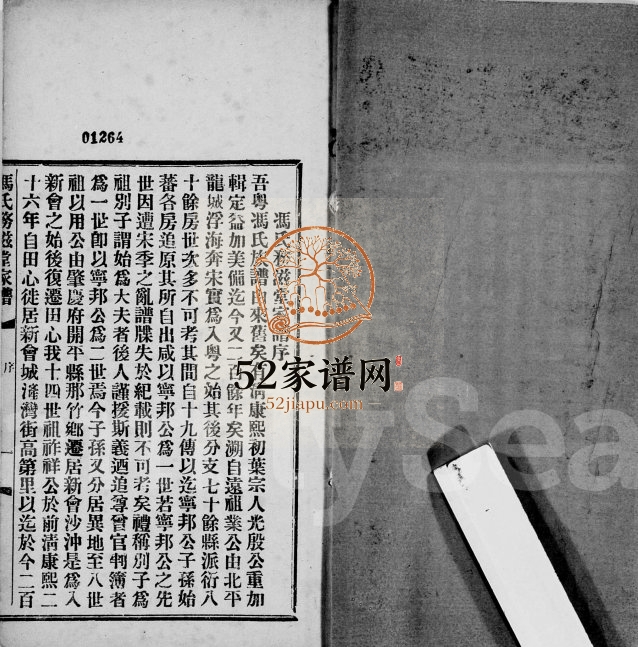 01264
馮氏務滋堂家譜序
吾粵馮氏族譜來舊矣有清康熙初葉宗人光殷公重加
輯定益加美備迄今又二百餘年矣溯自遠祖業公由北平
龍城浮海奔宋實為入粵之始其後分支七十餘縣派衍八
十餘房世次多不可考其間自十九傳以迄寧邦公子孫始
蕃各房追原其所自出咸以寧邦公為一世若寧邦公之先
世因遭宋季之亂譜牒失於紀載則不可考矣禮稱別子為
祖別子謂始為大夫者後人謹援斯義迺追尊曾官判簿者
為一世卽以寧邦公為二世焉今子孫又分居異地至八世
祖以用公由肇慶府開平縣那竹鄉遷居新會沙沖是為入
新會之始後復遷田心我十四世祖祚祥公於前清康熙二
十六年自田心徙居新會城灣街高第里以迄於今二百
馮氏務滋堂家譜
序
一
52家谱网
52jiapu.com
ySea